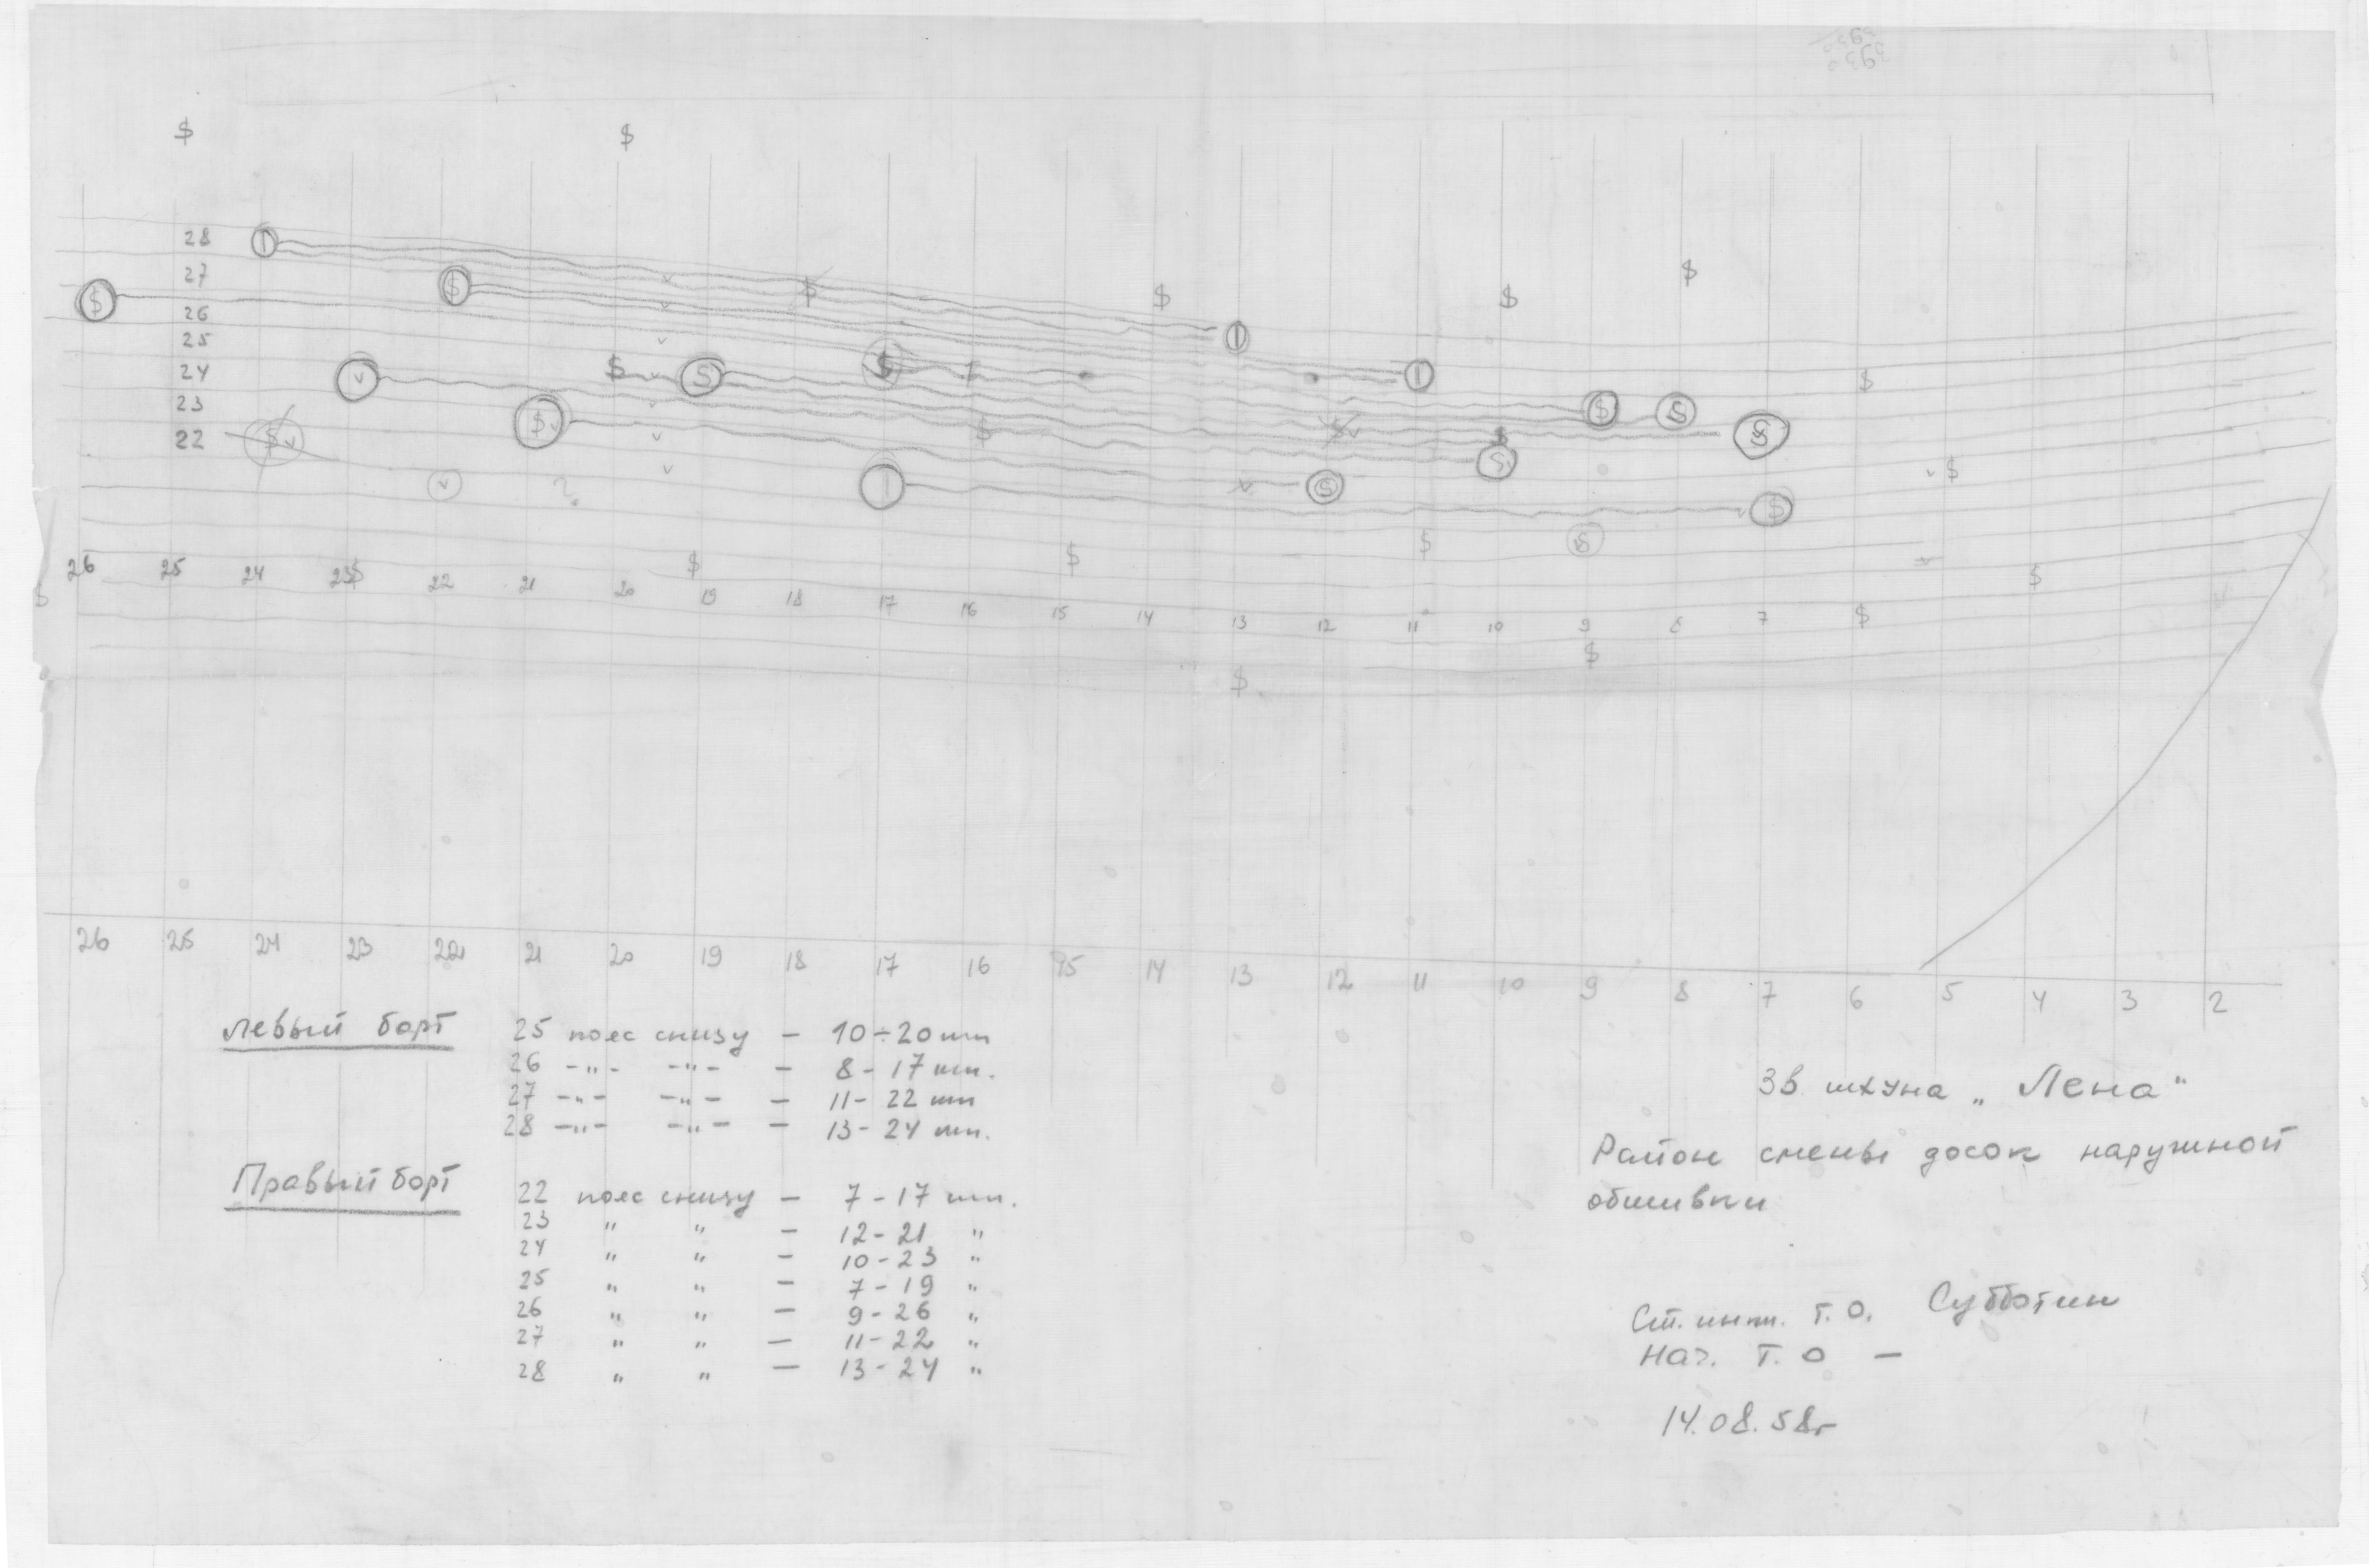 28
27
26
25
24
23
22
26 25 24 23 22 21 20 19 18 17 16 15 14 13 12 11 10 9 8 7
26 25 24 23 22 21 20 19 18 17 16 15 14 13 12 11 10 9 8 7 6 5 4 3 2
Левый борт
25 пояс снизу — 10÷20 шп
26 -„- -„- — 8-17 шп.
27 -„- -„- — 11-22 шп
28 -„- -„- — 13-24 шп.
Правый борт
22 пояс снизу — 7-17 шп.
23 „ „ — 12-21 „
24 „ „ — 10-23 „
25 „ „ — 7-19 „
26 „ „ — 9-26 „
27 „ „ — 11-22 „
28 „ „ — 13-24 „
Зв шхуна „Лена"
Район смены досок наружной
обшивки
Ст. инж. Т.О. Субботин
Нач. Т.О —
14.08.58г